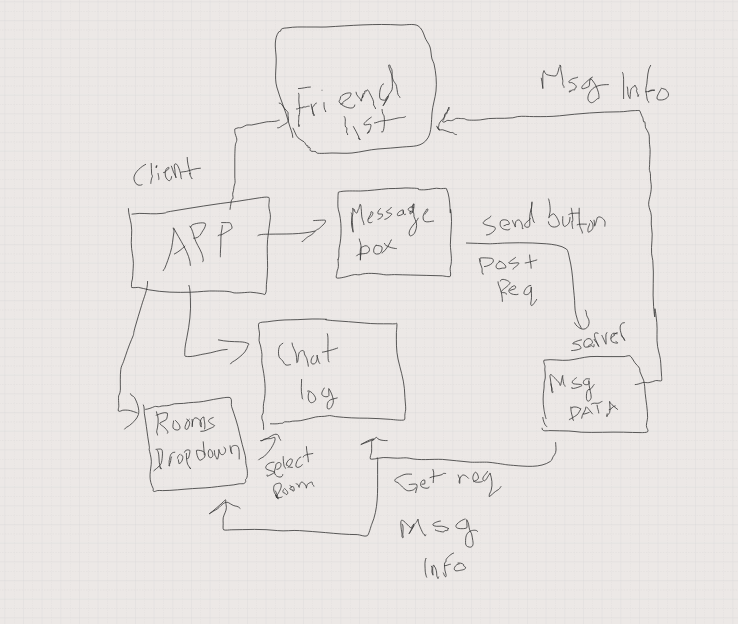 Friend
list
Msg Info
Client
APP
Message
box
Send button
Post
Req
server
Msg
DATA
Chat
log
Rooms
Dropdown
Select
Room
Get req
Msg
Info